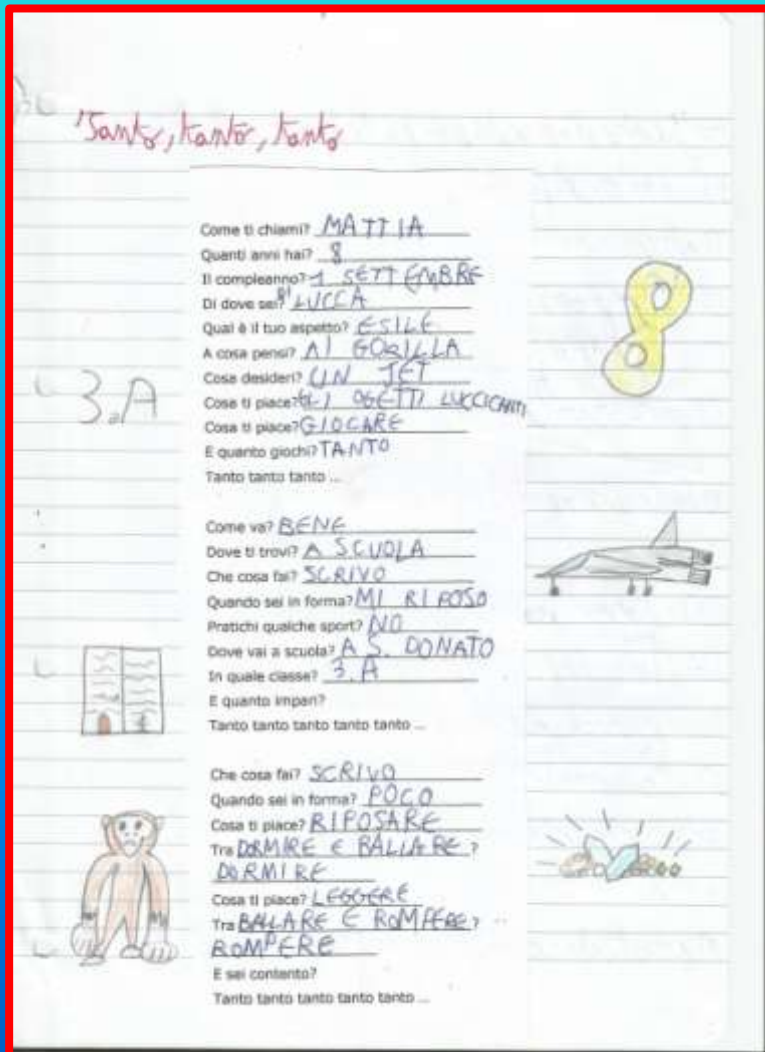 Tanto, tanto, tanto
Come ti chiami? MATTIA
Quanti anni hai? 8
Il compleanno? 1 SETTEMBRE
Di dove sei? DI LUCCA
Qual è il tuo aspetto? ESILE
A cosa pensi? AI GORILLA
Cosa desideri? UN JET
Cosa ti piace? GLI OGETTI LUCCICANTI
Cosa ti piace? GIOCARE
E quanto giochi? TANTO
Tanto tanto tanto ...
3.A
8
Come va? BENE
Dove ti trovi? A SCUOLA
Che cosa fai? SCRIVO
Quando sei in forma? MI RIPOSO
Pratichi qualche sport? NO
Dove vai a scuola? A S. DONATO
In quale classe? 3.A
E quanto impari?
Tanto tanto tanto tanto tanto ...
Che cosa fai? SCRIVO
Quando sei in forma? POCO
Cosa ti piace? RIPOSARE
Tra DORMIRE E BALLARE ?
DORMIRE
Cosa ti piace? LEGGERE
Tra BALLARE E ROMPERE?
ROMPERE
E sei contento?
Tanto tanto tanto tanto tanto ...